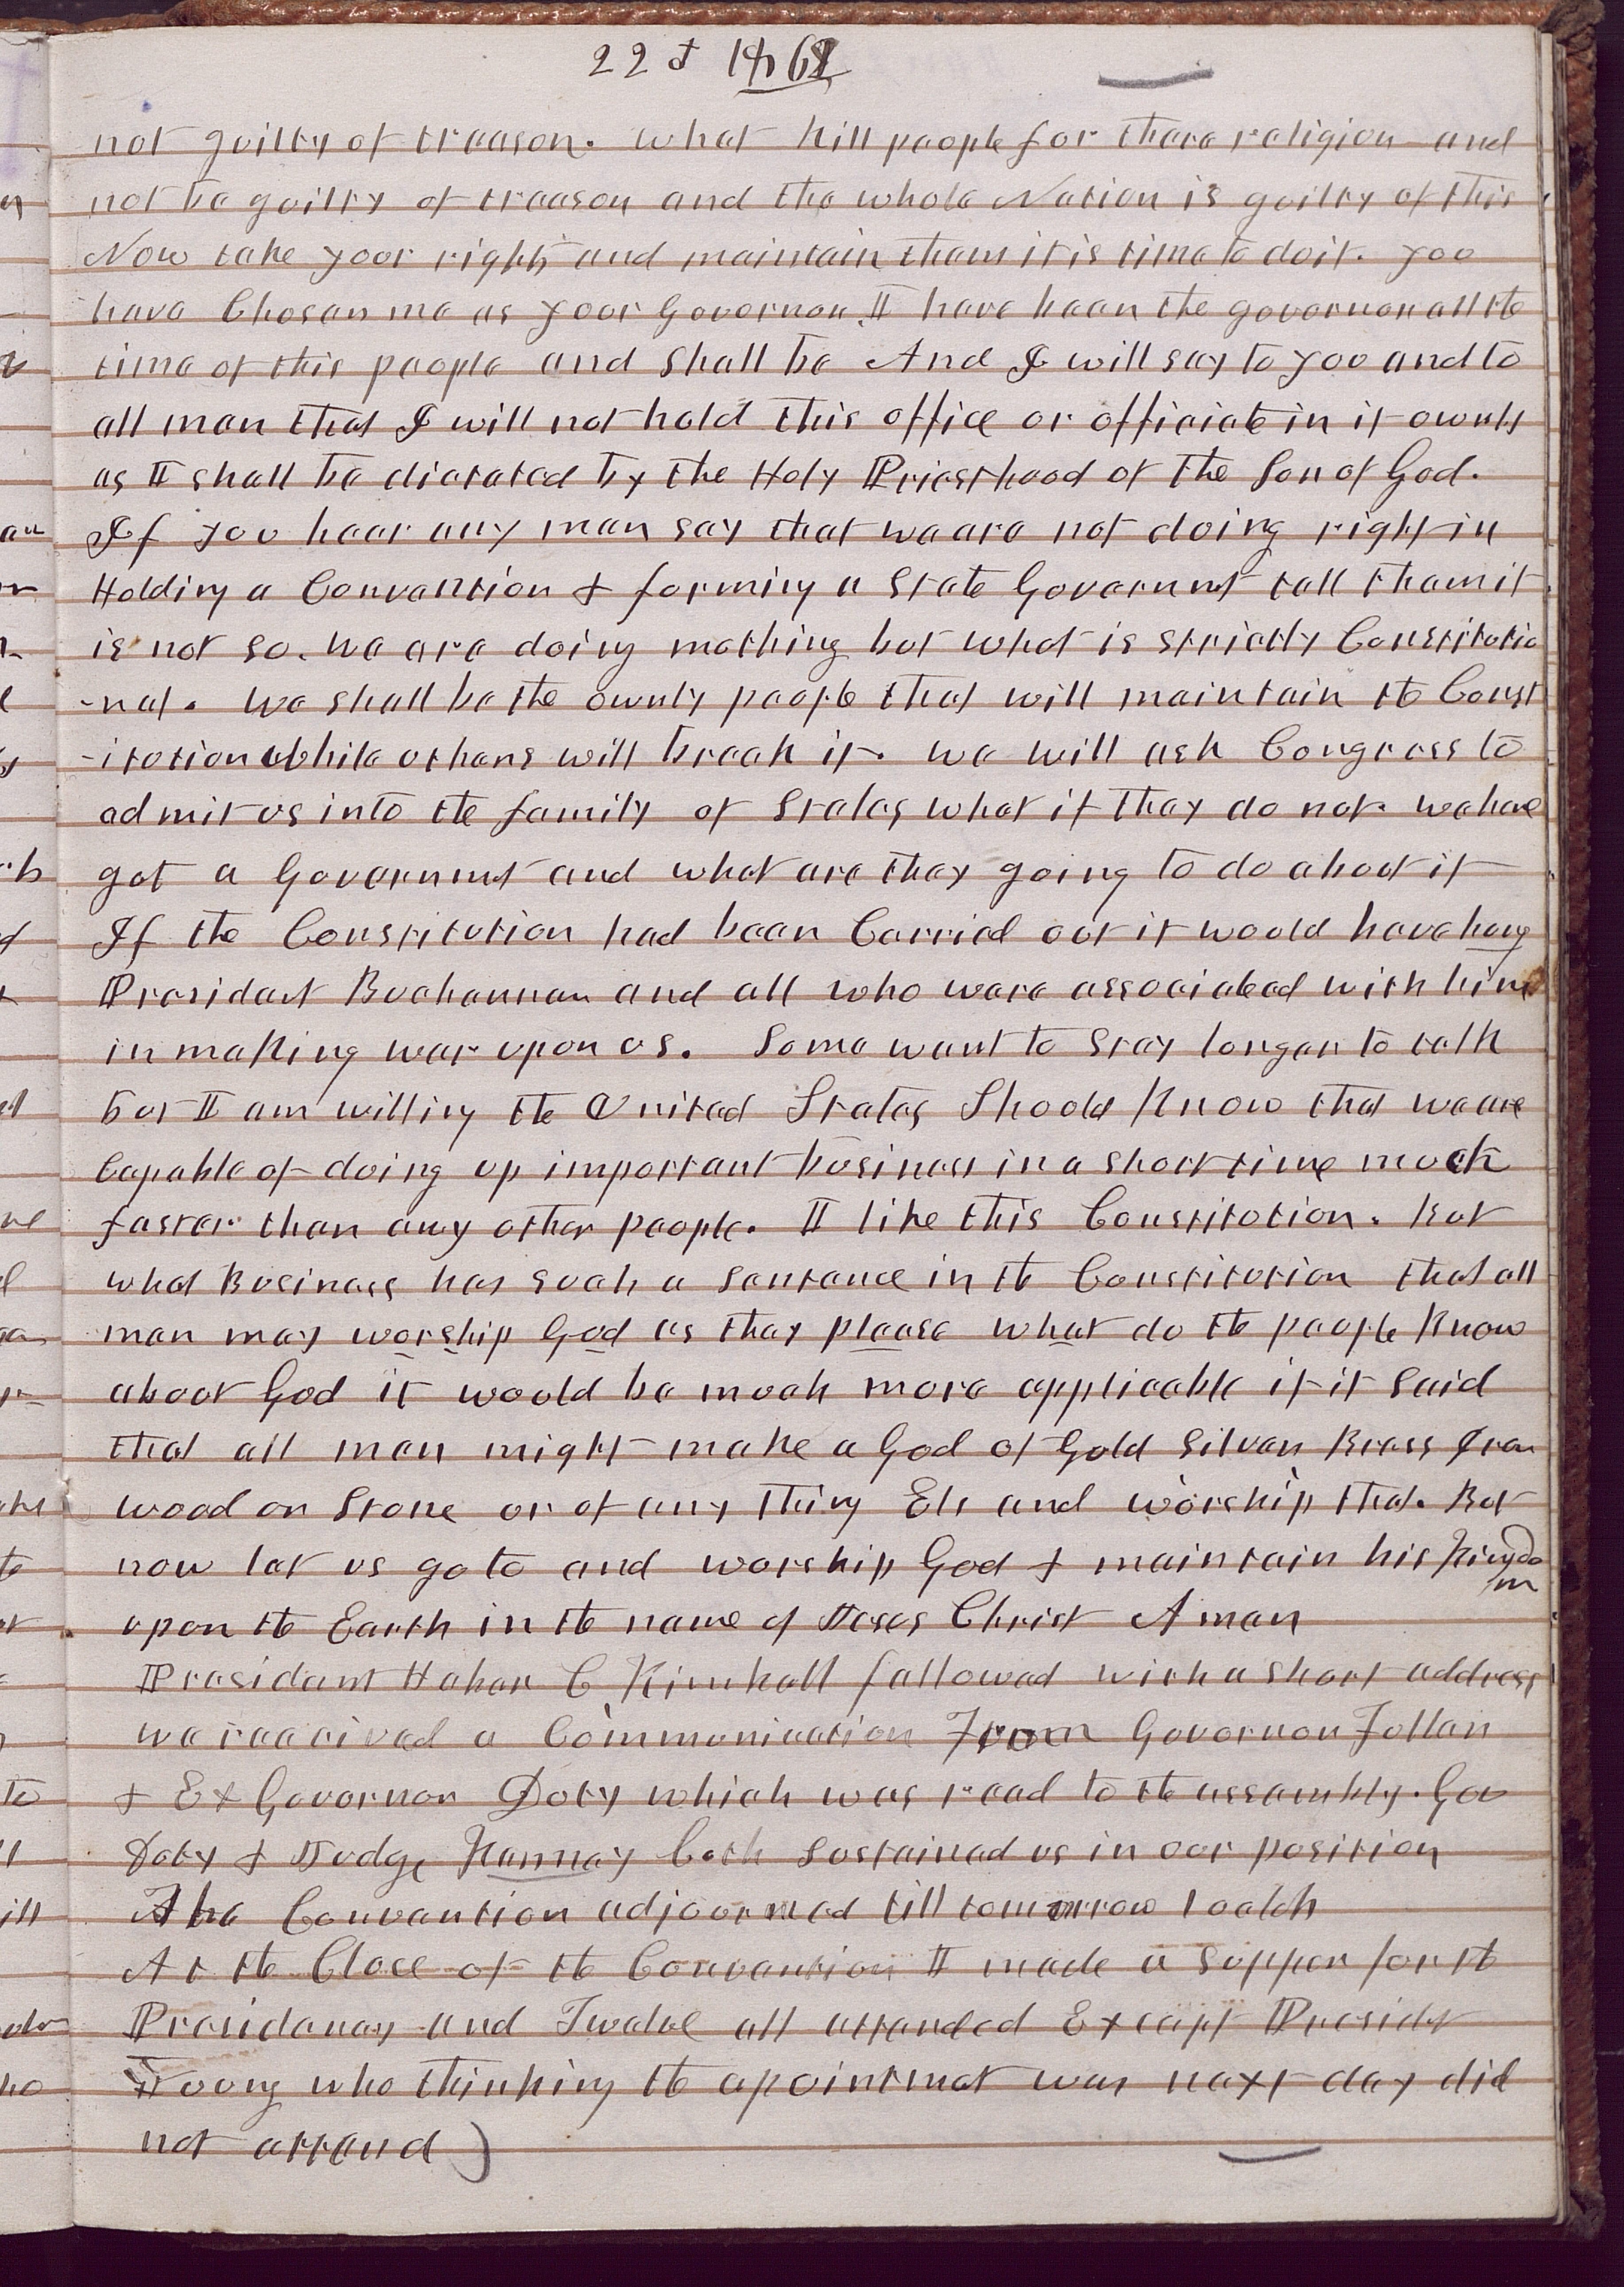 22d 1862
not guilty of treason. What kill people for there religion and
not be guilty of treason and the whole Nation is guilty of this
Now take your rights and maintain them it is time to do it. you
have Chosen me as your Governor. I have been the governor all the
time of this people and shall be And I will say to you and to
all men that I will not hold this office or officiate in it ownly
as I shall be dictated by the Holy Priesthood of the Son of God.
If you hear any man say that we are not doing right in
Holding a Convention & forming a State Governmt tell them it
is not so. we are doing nothing but what is strictly Constitutio
-nal. we shall be the ownly people that will maintain the Const
-itution while others will break it. we will ask Congress to
admit us into the family of States what if they do not. we have
got a Governmt and what are they going to do about it
If the Constitution had been Carried out it would have hung
President Buchannan and all who ware associated with him
in making war upon us. Some want to stay longer to talk
but I am willing the United States Should Know that we are
Capable of doing up important business in a short time much
faster than any other people. I like this Constitution. But
what Business has such a sentance in the Constitution that all
men may worship God as they please what do the people Know
about God it would be much more applicable if it said
that all men might make a God of Gold Silver Brass Iron
wood or Stone or of any thing Els and worship that. But
now let us go to and worship God & maintain his Kingdo
m
upon the Earth in the name of Jesus Christ Amen
President Heber C Kimball followed with a short address
we received a Communication From Governor Fuller
& Ex Governor Doty which was read to the assembly. Gov
Doty & Judge Kenney both sustained us in our position
The Convention adjourned till tomorrow 1 oclok
At the Close of the Convention I made a supper for the
Presidency and Twelve all attended Except Presidet
Young who thinking the apointmet was next day did
not attend)